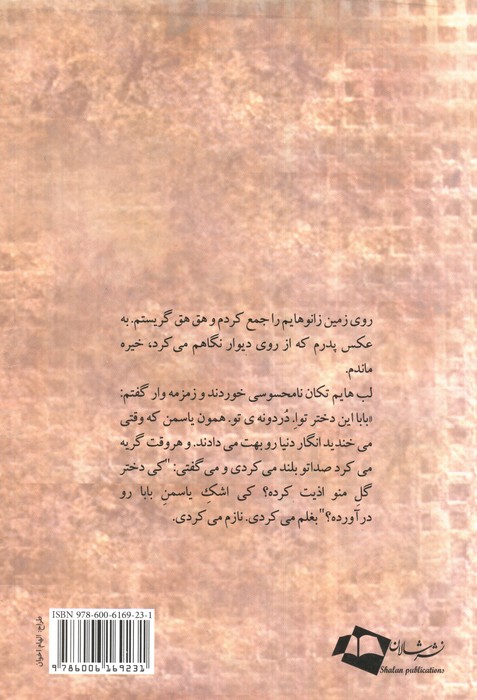 روی زمین زانوهایم را جمع کردم و هق هق گریستم. به
عکس پدرم که از روی دیوار نگاهم می‌کرد، خیره
ماندم.
لب هایم تکان نامحسوسی خوردند و زمزمه وار گفتم:
«بابا این دختر تواِ. دُردونه ی تو. همون یاسمن که وقتی
می خندید انگار دنیا رو بهت می دادند. و هروقت گریه
می کرد صداتو بلند می کردی و می گفتی: "کی دختر
گل منو اذیت کرده؟ کی اشکِ یاسمنِ بابا رو
درآورده؟" بغلم می کردی. نازم می کردی.
ISBN 978-600-6169-23-1
9786006169231
طراح: الهام اخوان
نشر شالان
Shalan publications